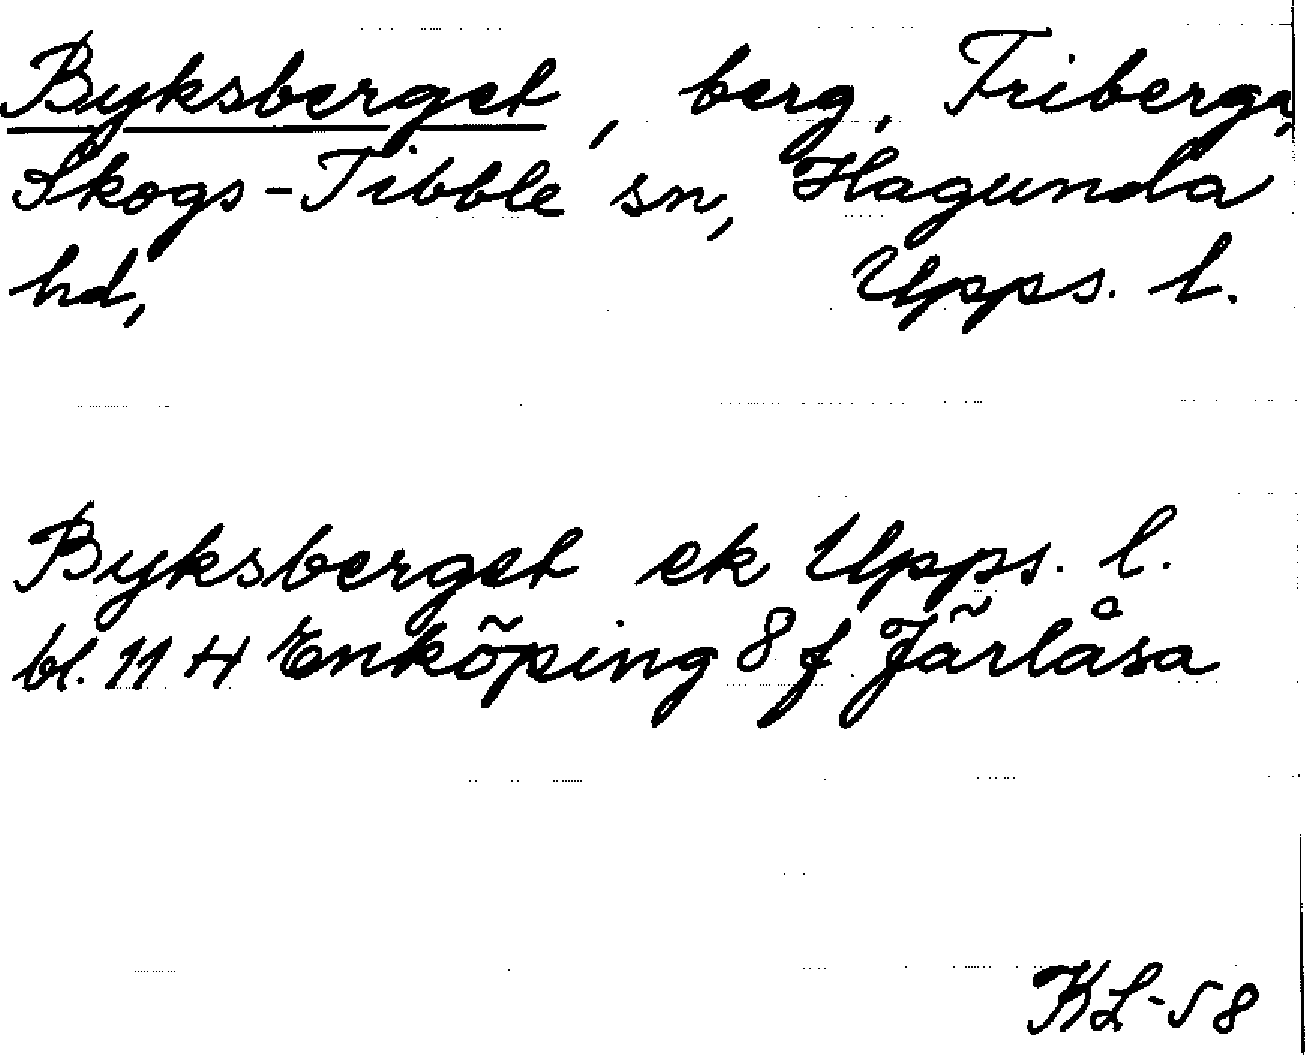 Byksberget, berg, Friberga,
Skogs-Tibble sn, Hagunda
hd, Upps. l.
Byksberget ek Upps. l.
bl. 11 H Enköping 8 f Järlåsa
KL-58